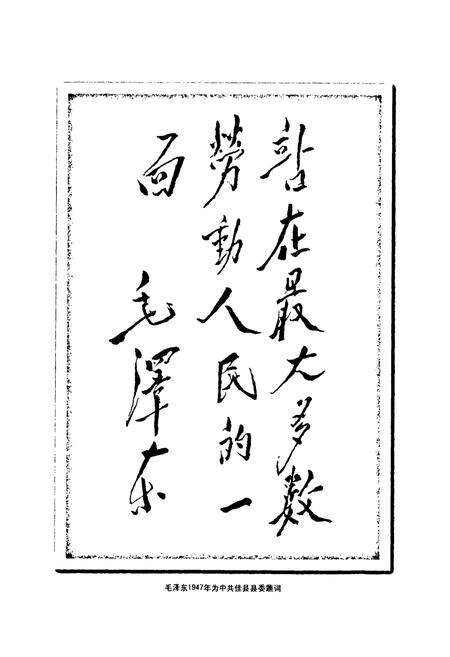 站在最大多数
勞動人民的一
面
毛澤东
毛泽东1947年为中共佳县县委题词